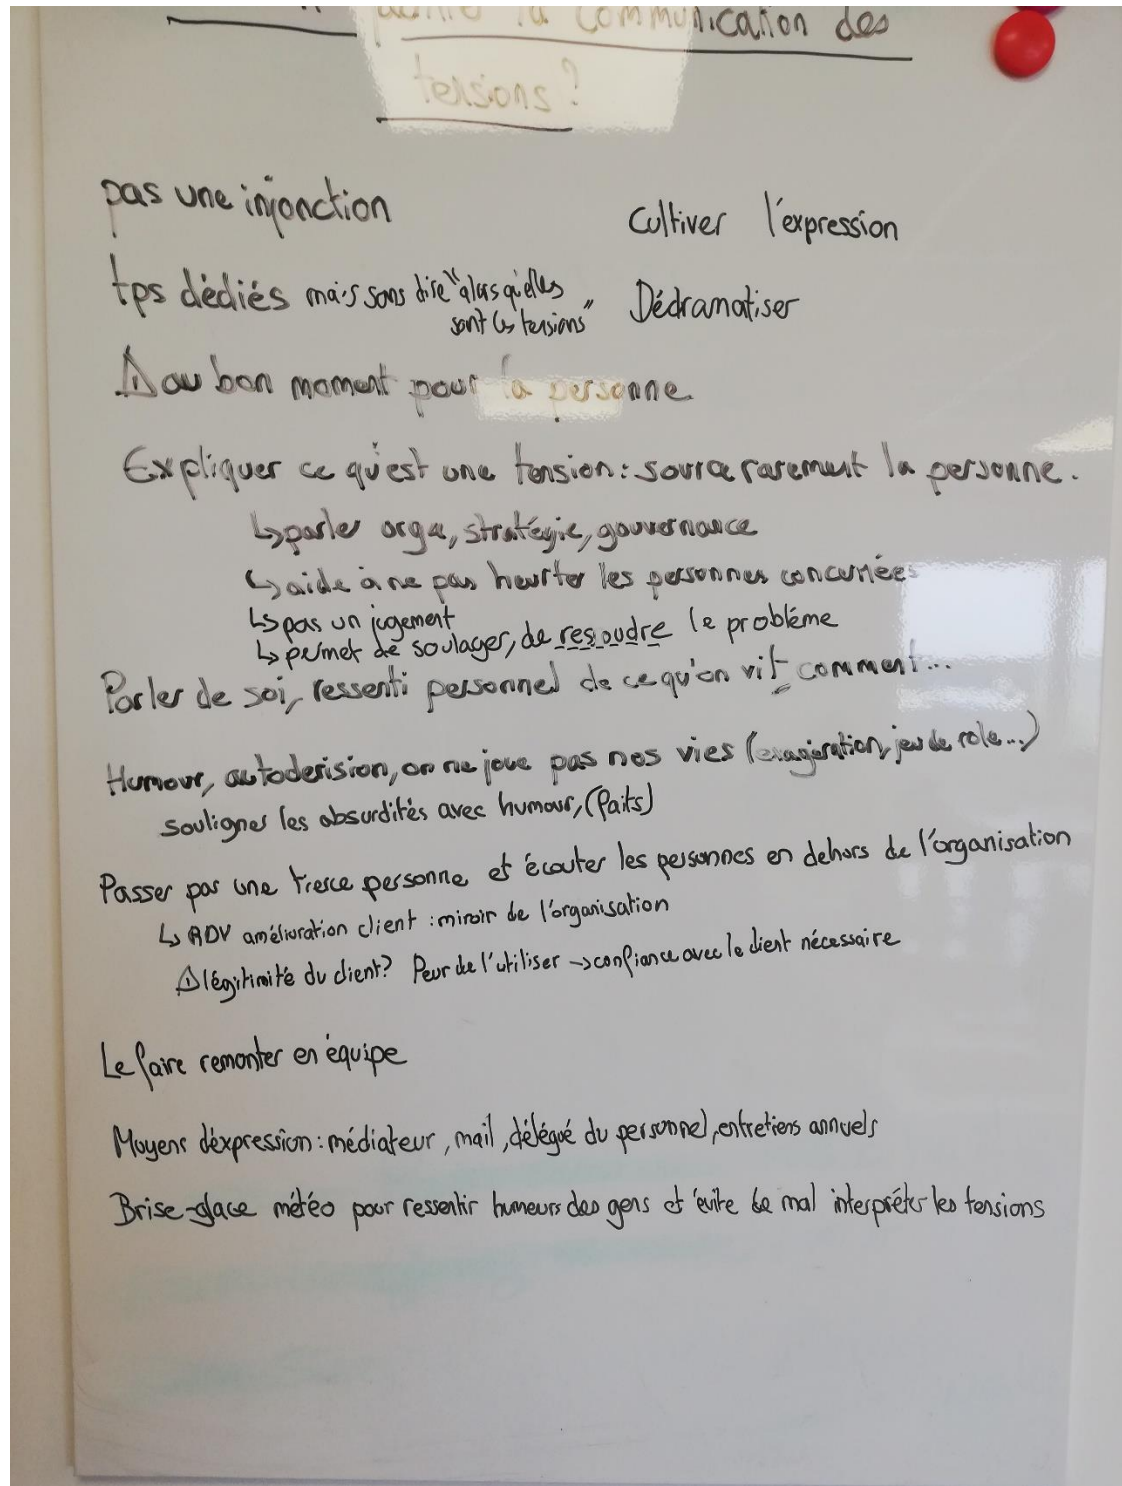 la communication des
tensions ?
pas une injonction
Cultiver l'expression
tps dédiés mais sans dire "alors qu'elles
sont les tensions"
Dédramatiser
⚠ au bon moment pour la personne
Expliquer ce qu'est une tension : source rarement la personne.
↳ parler orga, stratégie, gouvernance
↳ aide à ne pas heurter les personnes concernées
↳ pas un jugement
↳ permet de soulager, de resoudre le problème
Parler de soi, ressenti personnel de ce qu'on vit comment...
Humour, autoderision, on ne joue pas nos vies (exagération, jeu de role...)
souligner les absurdités avec humour, (faits)
Passer par une tierce personne et écouter les personnes en dehors de l'organisation
↳ RDV amélioration client : miroir de l'organisation
⚠ légitimité du client ? Peur de l'utiliser → confiance avec le client nécessaire
Le faire remonter en équipe
Moyens d'expression : médiateur, mail, délégué du personnel, entretiens annuels
Brise-glace météo pour ressentir humeurs des gens et évite de mal interpréter les tensions